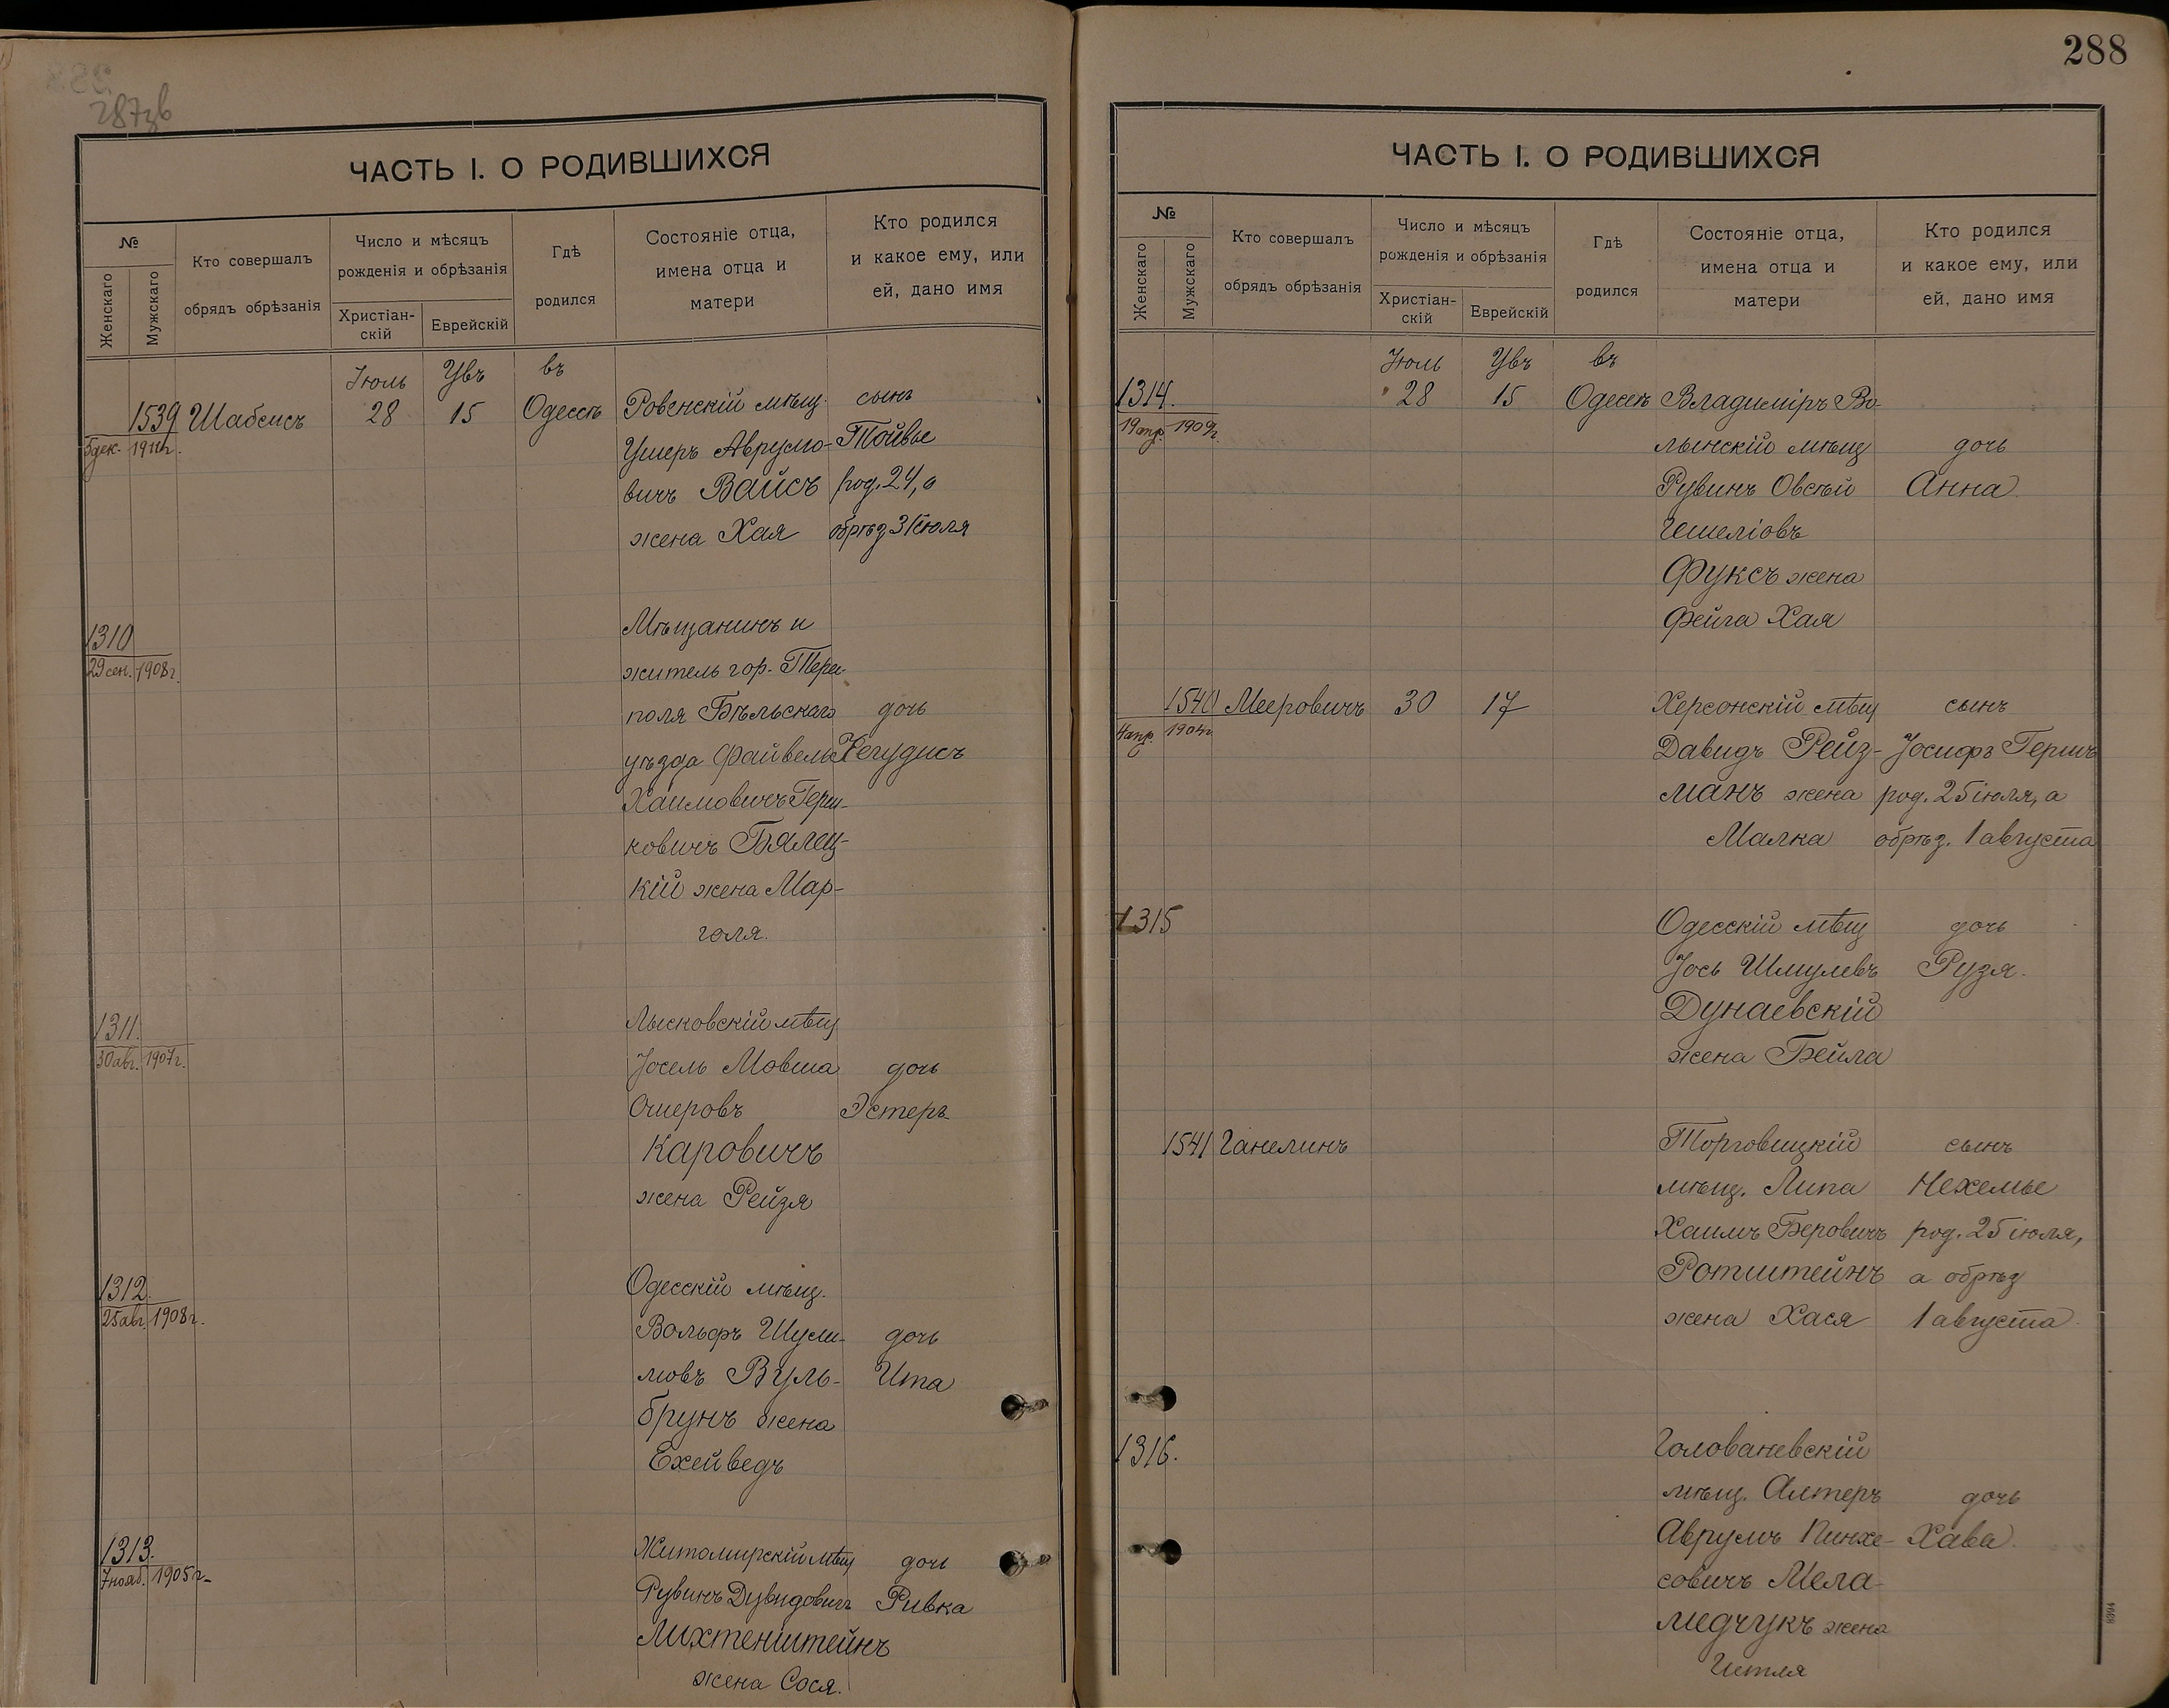 287зв
ЧАСТЬ I. О РОДИВШИХСЯ
№
Женскаго
Мужскаго
Кто совершалъ
обрядъ обрѣзанія
Число и мѣсяцъ
рожденія и обрѣзанія
Христіан-
скій
Еврейскій
Гдѣ
родился
Состояніе отца,
имена отца и
матери
Кто родился
и какое ему, или
ей, дано имя
Іюль Увъ въ
1539 Шабсисъ 28 15 Одессѣ Ровенскій мѣщ. сынъ
5 дек.
Ушеръ Аврумо- Тойвье
вичъ Вайсъ род. 24, а
жена Хая обрѣз 31 іюля
1310 Мѣщанинъ и
29 сен. 1908 г. житель гор. Тере-
поля Бѣльскаго дочь
уѣзда Файвель Іегудисъ
Хаимовичъ Герш-
ковичъ Бялец-
кій жена Мар-
голя.
1311. Лысковскій мѣщ
30 авг. 1907 г. Іосель Мовша дочь
Ошеровъ Эстеръ
Каровичъ
жена Рейзя
1312. Одесскій мѣщ.
25 авг. 1908 г. Вольфъ Шули-
мовъ Вуль- дочь
Ита
брунъ жена
Ехейведъ
1313. Житомирскій мѣщ дочь
7 нояб. 1905 г. Рувинъ Дувидовичъ Ривка
Лихтенштейнъ
жена Сося.
288
ЧАСТЬ I. О РОДИВШИХСЯ
№
Женскаго
Мужскаго
Кто совершалъ
обрядъ обрѣзанія
Число и мѣсяцъ
рожденія и обрѣзанія
Христіан-
скій
Еврейскій
Гдѣ
родился
Состояніе отца,
имена отца и
матери
Кто родился
и какое ему, или
ей, дано имя
Іюль Увъ въ
1314. 28 15 Одессѣ Владиміръ Во-
19 апр. 1909 г.
лынскій мѣщ дочь
Рувинъ Овсѣй Анна
Гешеліовъ
Фуксъ жена
Фейга Хая
1540 Мееровичъ 30 17 Херсонскій мѣщ сынъ
4 апр. 1904 г.
Давидъ Рейз- Іосифъ Гершъ
манъ жена род. 25 іюля, а
Малка обрѣз. 1 августа
1315 Одесскій мѣщ дочь
Іось Шмулевъ Рузя.
Дунаевскій
жена Бейла
1541 Ганелинъ Торговицкій сынъ
мѣщ. Липа Нехемье
Хаимъ Беровичъ род. 25 іюля,
Ротштейнъ а обрѣз
жена Хася 1 августа
1316. Голованевскій
мѣщ. Алтеръ дочь
Аврумъ Пинхе- Хава
совичъ Мела-
медчукъ жена
Гитля
8394